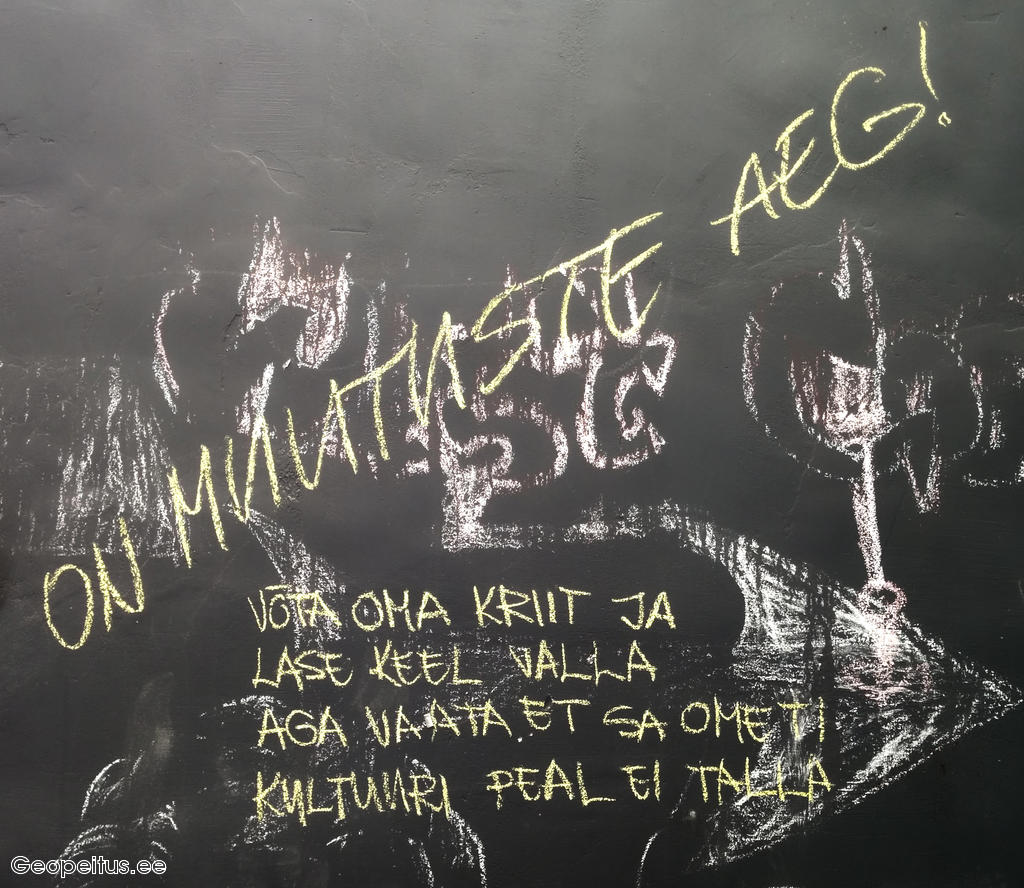 ON MUUTUSTE AEG!
VÕTA OMA KRIIT JA
LASE KEEL VALLA
AGA VAATA ET SA OMETI
KULTUURI PEAL EI TALLA
Geopeitus.ee